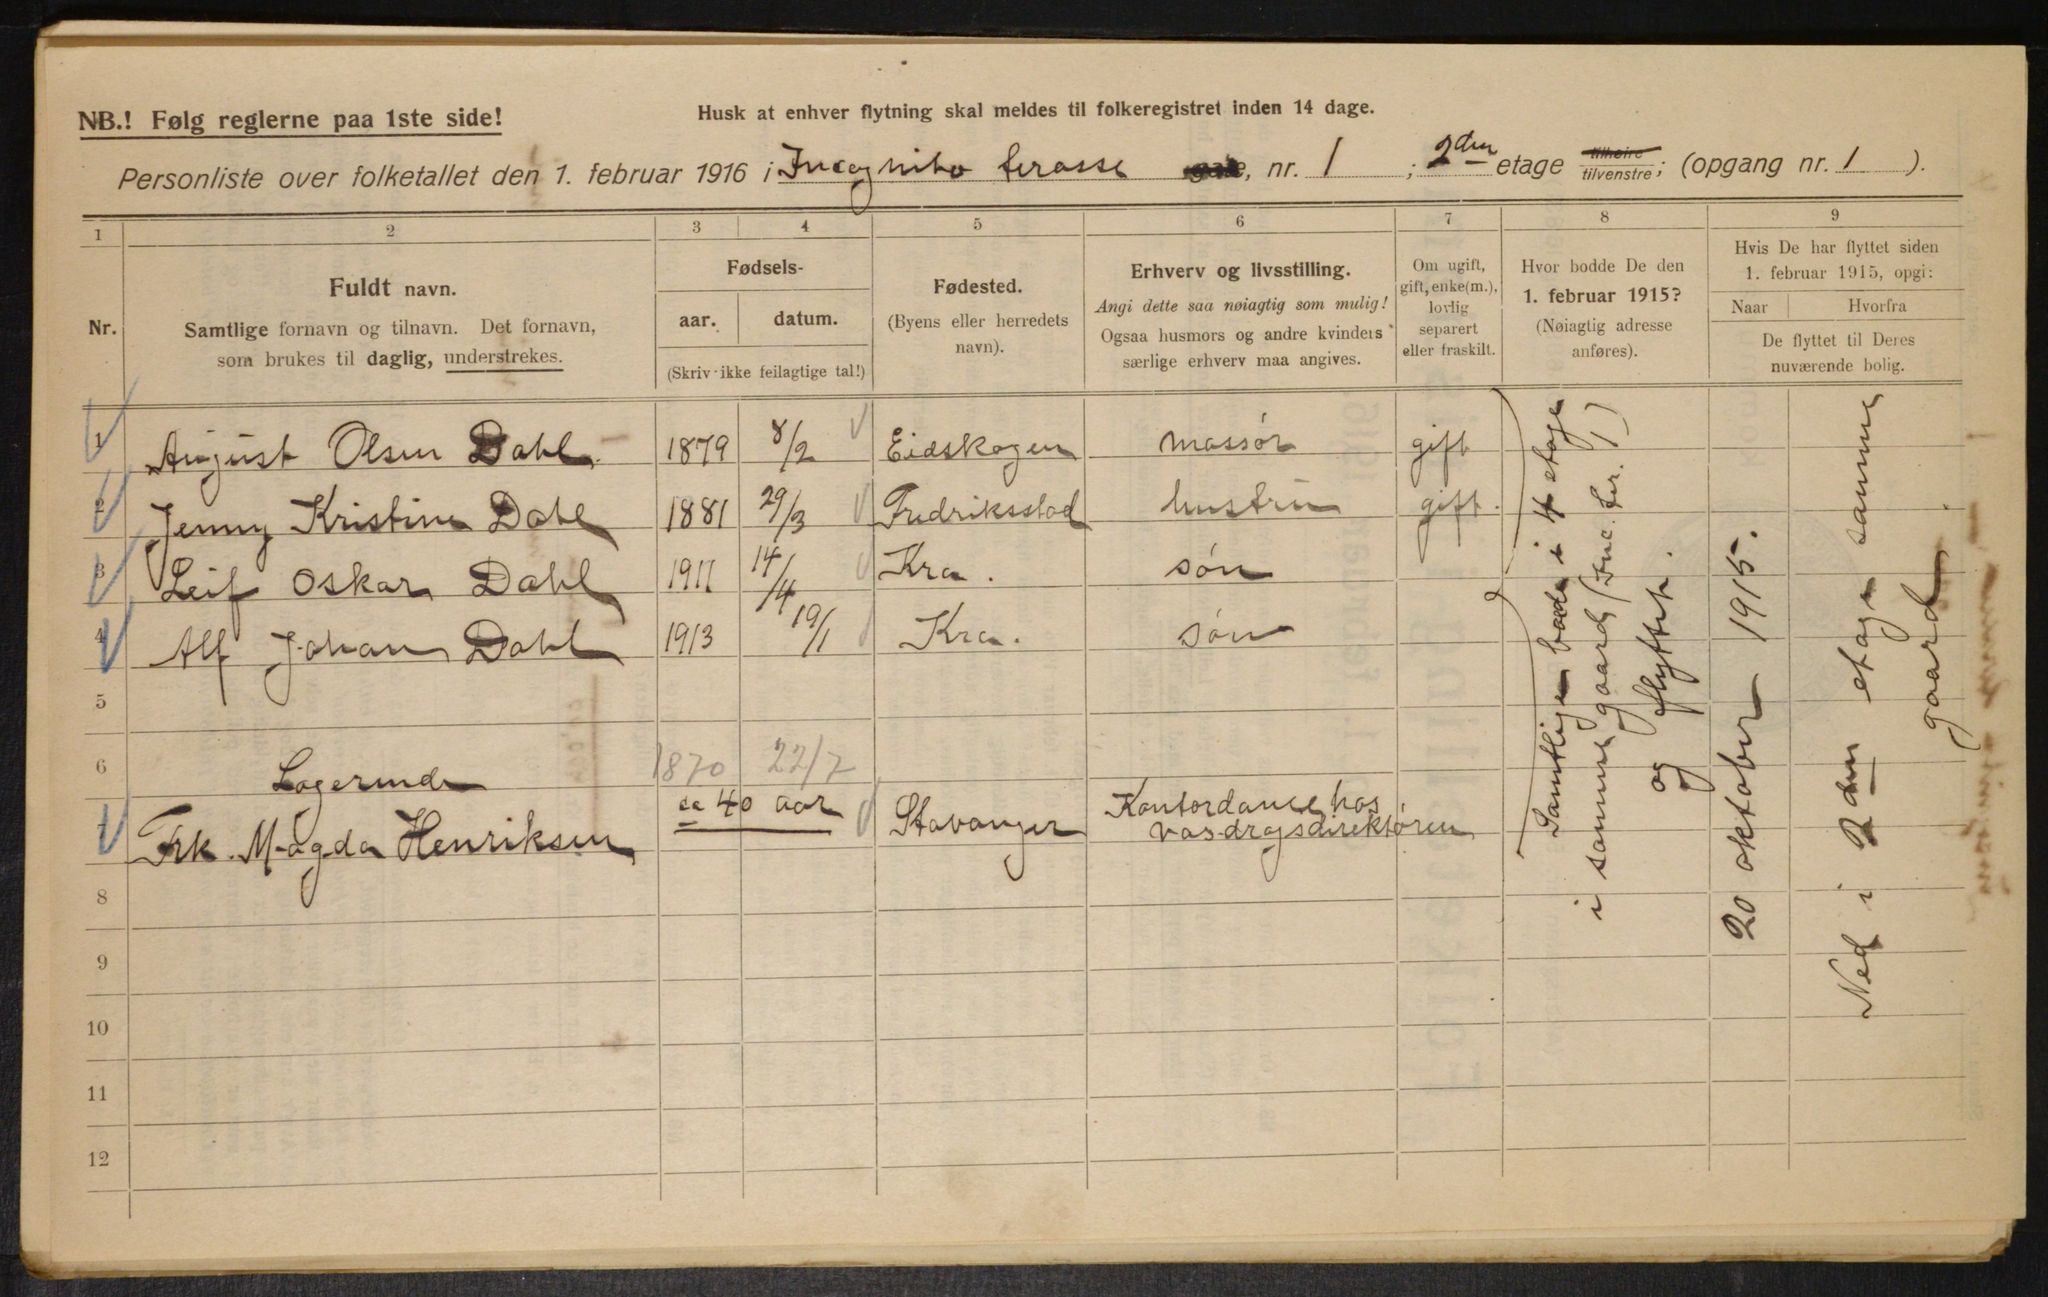 NB.! Følg reglerne paa 1ste side!
Husk at enhver flytning skal meldes til folkeregistret inden 14 dage.
Personliste over folketallet den 1. februar 1916 i Incognito terasse gate, nr. 1 ; 2den etage tilhøire/tilvenstre; (opgang nr. 1 ).
1 2 3 4 5 6 7 8 9
Nr.
Fuldt navn.
Samtlige fornavn og tilnavn. Det fornavn,
som brukes til daglig, understrekes.
Fødsels-
aar. datum.
(Skriv ikke feilagtige tal!)
Fødested.
(Byens eller herredets
navn).
Erhverv og livsstilling.
Angi dette saa nøiagtig som mulig!
Ogsaa husmors og andre kvinders
særlige erhverv maa angives.
Om ugift,
gift, enke(m.),
lovlig
separert
eller fraskilt.
Hvor bodde De den
1. februar 1915?
(Nøiagtig adresse
anføres).
Hvis De har flyttet siden
1. februar 1915, opgi:
Naar Hvorfra
De flyttet til Deres
nuværende bolig.
1 August Olsen Dahl 1879 8/2 Eidskogen massør gift
2 Jenny Kristine Dahl 1881 29/3 Fredriksstad hustru gift.
3 Leif Oskar Dahl 1911 14/4 Kra. søn
4 Alf Johan Dahl 1913 19/1 Kra. søn
5
6 Logerende 1870 22/7
7 Frk. Magda Henriksen ca 40 aar Stavanger Kontordame hos
vasdragsdirektøren
8
9
10
11
12
Samtlige bodde i 4 etage
i samme gaard (Inc. ter. 1)
og flyttet.
20 oktober 1915.
Ned i 2den etage samme
gaard.